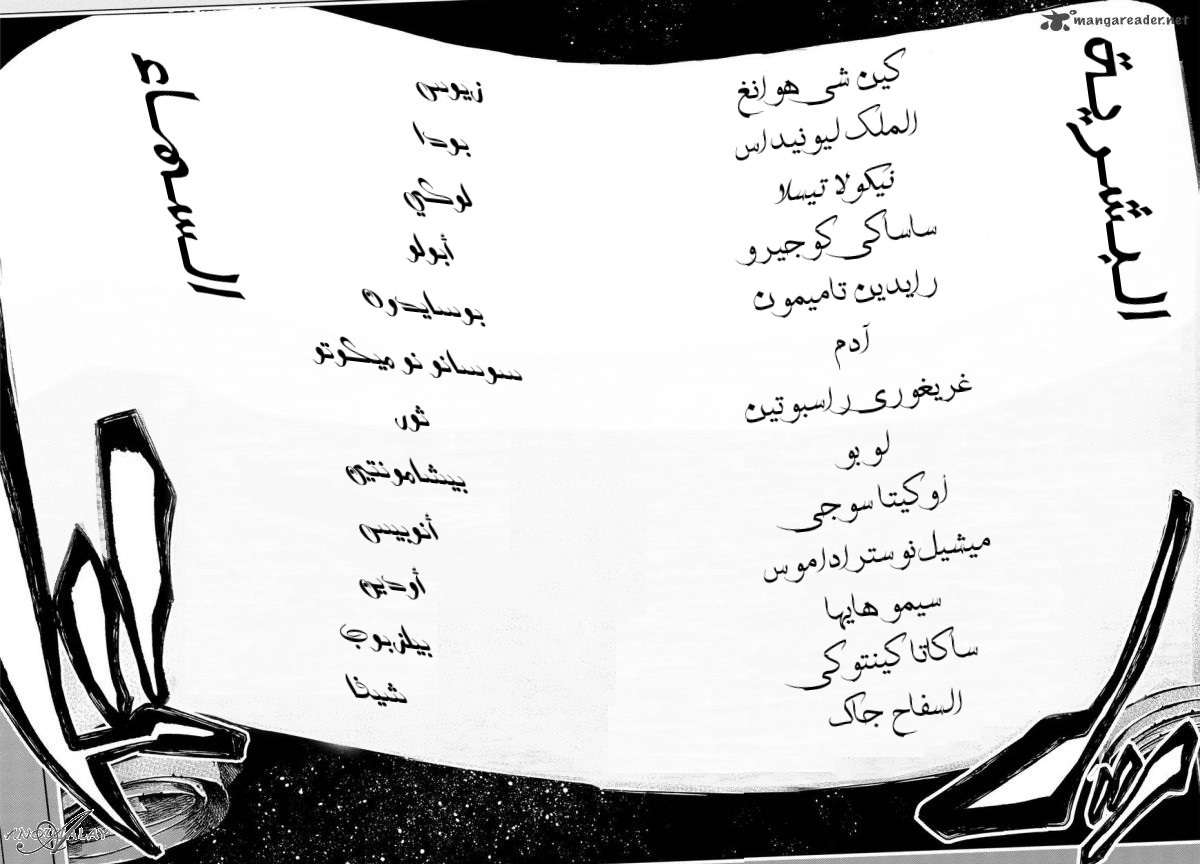 mangareader.net
البشرية
كين شي هوانغ
الملك ليونيداس
نيكولا تيسلا
ساساكي كوجيرو
رايدين تاميمون
آدم
غريغوري راسبوتين
لو بو
أوكيتا سوجي
ميشيل نوستراداموس
سيمو هايها
ساكاتا كينتوكي
السفاح جاك
السماء
زيوس
بودا
لوكي
أبولو
بوسايدون
سوسانو نو ميكوتو
ثور
بيشامونتين
أنوبيس
أودين
بيلزبوب
شيفا